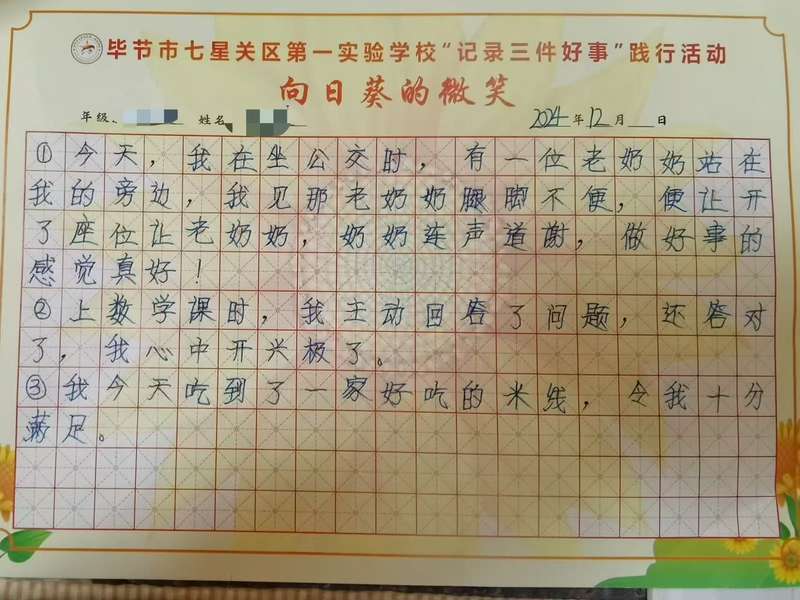 毕节市七星关区第一实验学校“记录三件好事”践行活动
向日葵的微笑
年级、 姓名 2024年12月 日
①今天，我在坐公交时，有一位老奶奶站在
我的旁边，我见那老奶奶腿脚不便，便让开
了座位让老奶奶，奶奶连声道谢，做好事的
感觉真好！
②上数学课时，我主动回答了问题，还答对
了，我心中开兴极了。
③我今天吃到了一家好吃的米线，令我十分
满足。